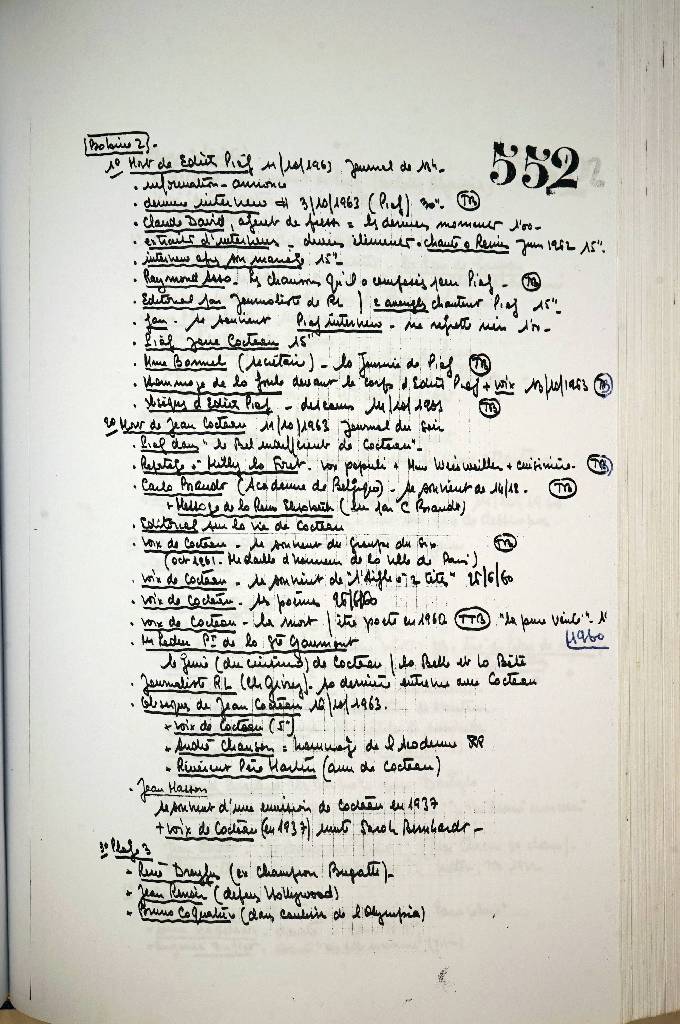 552
1° Mort de Edith Piaf 11/10/1963 Journal de 13h.
. information - annonce
. dernière interview 3/10/1963 (Piaf) 30". TB
. Claude David, agent de presse = les derniers moments 1'00-
. extraits d'interviews - Juin 1962 15".
. interview après son mariage 15"-
. Raymond Asso - les chansons qu'il a composées pour Piaf - TB
. Editorial par Journaliste de RL / 2 aveugles chantent Piaf 15"-
. se souvient Piaf interview - ne regrette rien 1'00-
. Piaf joue Cocteau 15"
. Mme Bonnel (secrétaire) - la Journée de Piaf TB
. Hommage de la foule devant le corps d'Edith Piaf + voix 13/10/1963 TB
. obsèques d'Edith Piaf - discours 14/10/1963 TB
2° Mort de Jean Cocteau 11/10/1963 Journal du Soir
. Piaf dans "le Bel indifférent de Cocteau"-
. Reportage à Milly la Forêt. vox populi + Mme Weisweiller + cuisinière- TB
. Carlo Bronde (Académie de Belgique) - se souvient de 14/18- TB
+ Message de la Reine Elisabeth (lu par C Bronde)
. Editorial sur la vie de Cocteau
. voix de Cocteau - se souvient du Groupe des Six TB
(oct 1961. Médaille d'honneur de la ville de Paris)
. voix de Cocteau - se souvient de "l'Aigle à 2 têtes" 25/6/60
. voix de Cocteau - les poèmes 25/6/60
. voix de Cocteau - la mort / être poète en 1960 TTB "la pure vérité"- 1'
(1960
. Pt de la Sté Gaumont
le Génie (du cinéma) de Cocteau / la Belle et la Bête
. Journaliste RL - sa dernière entrevue avec Cocteau
. obsèques de Jean Cocteau 16/10/1963.
+ voix de Cocteau (5")
+ André Chamson = hommage de l'Académie
+ Révérent Père Martin (ami de Cocteau)
. Jean Masson
se souvient d'une émission de Cocteau en 1937
+ voix de Cocteau (en 1937) imite Sarah Bernhardt -
3° Plage 3
. René Dreyfus (ex Champion Bugatti)-
. Jean Renoir (depuis Hollywood)
. Bruno Coquatrix (dans coulisse de l'Olympia)